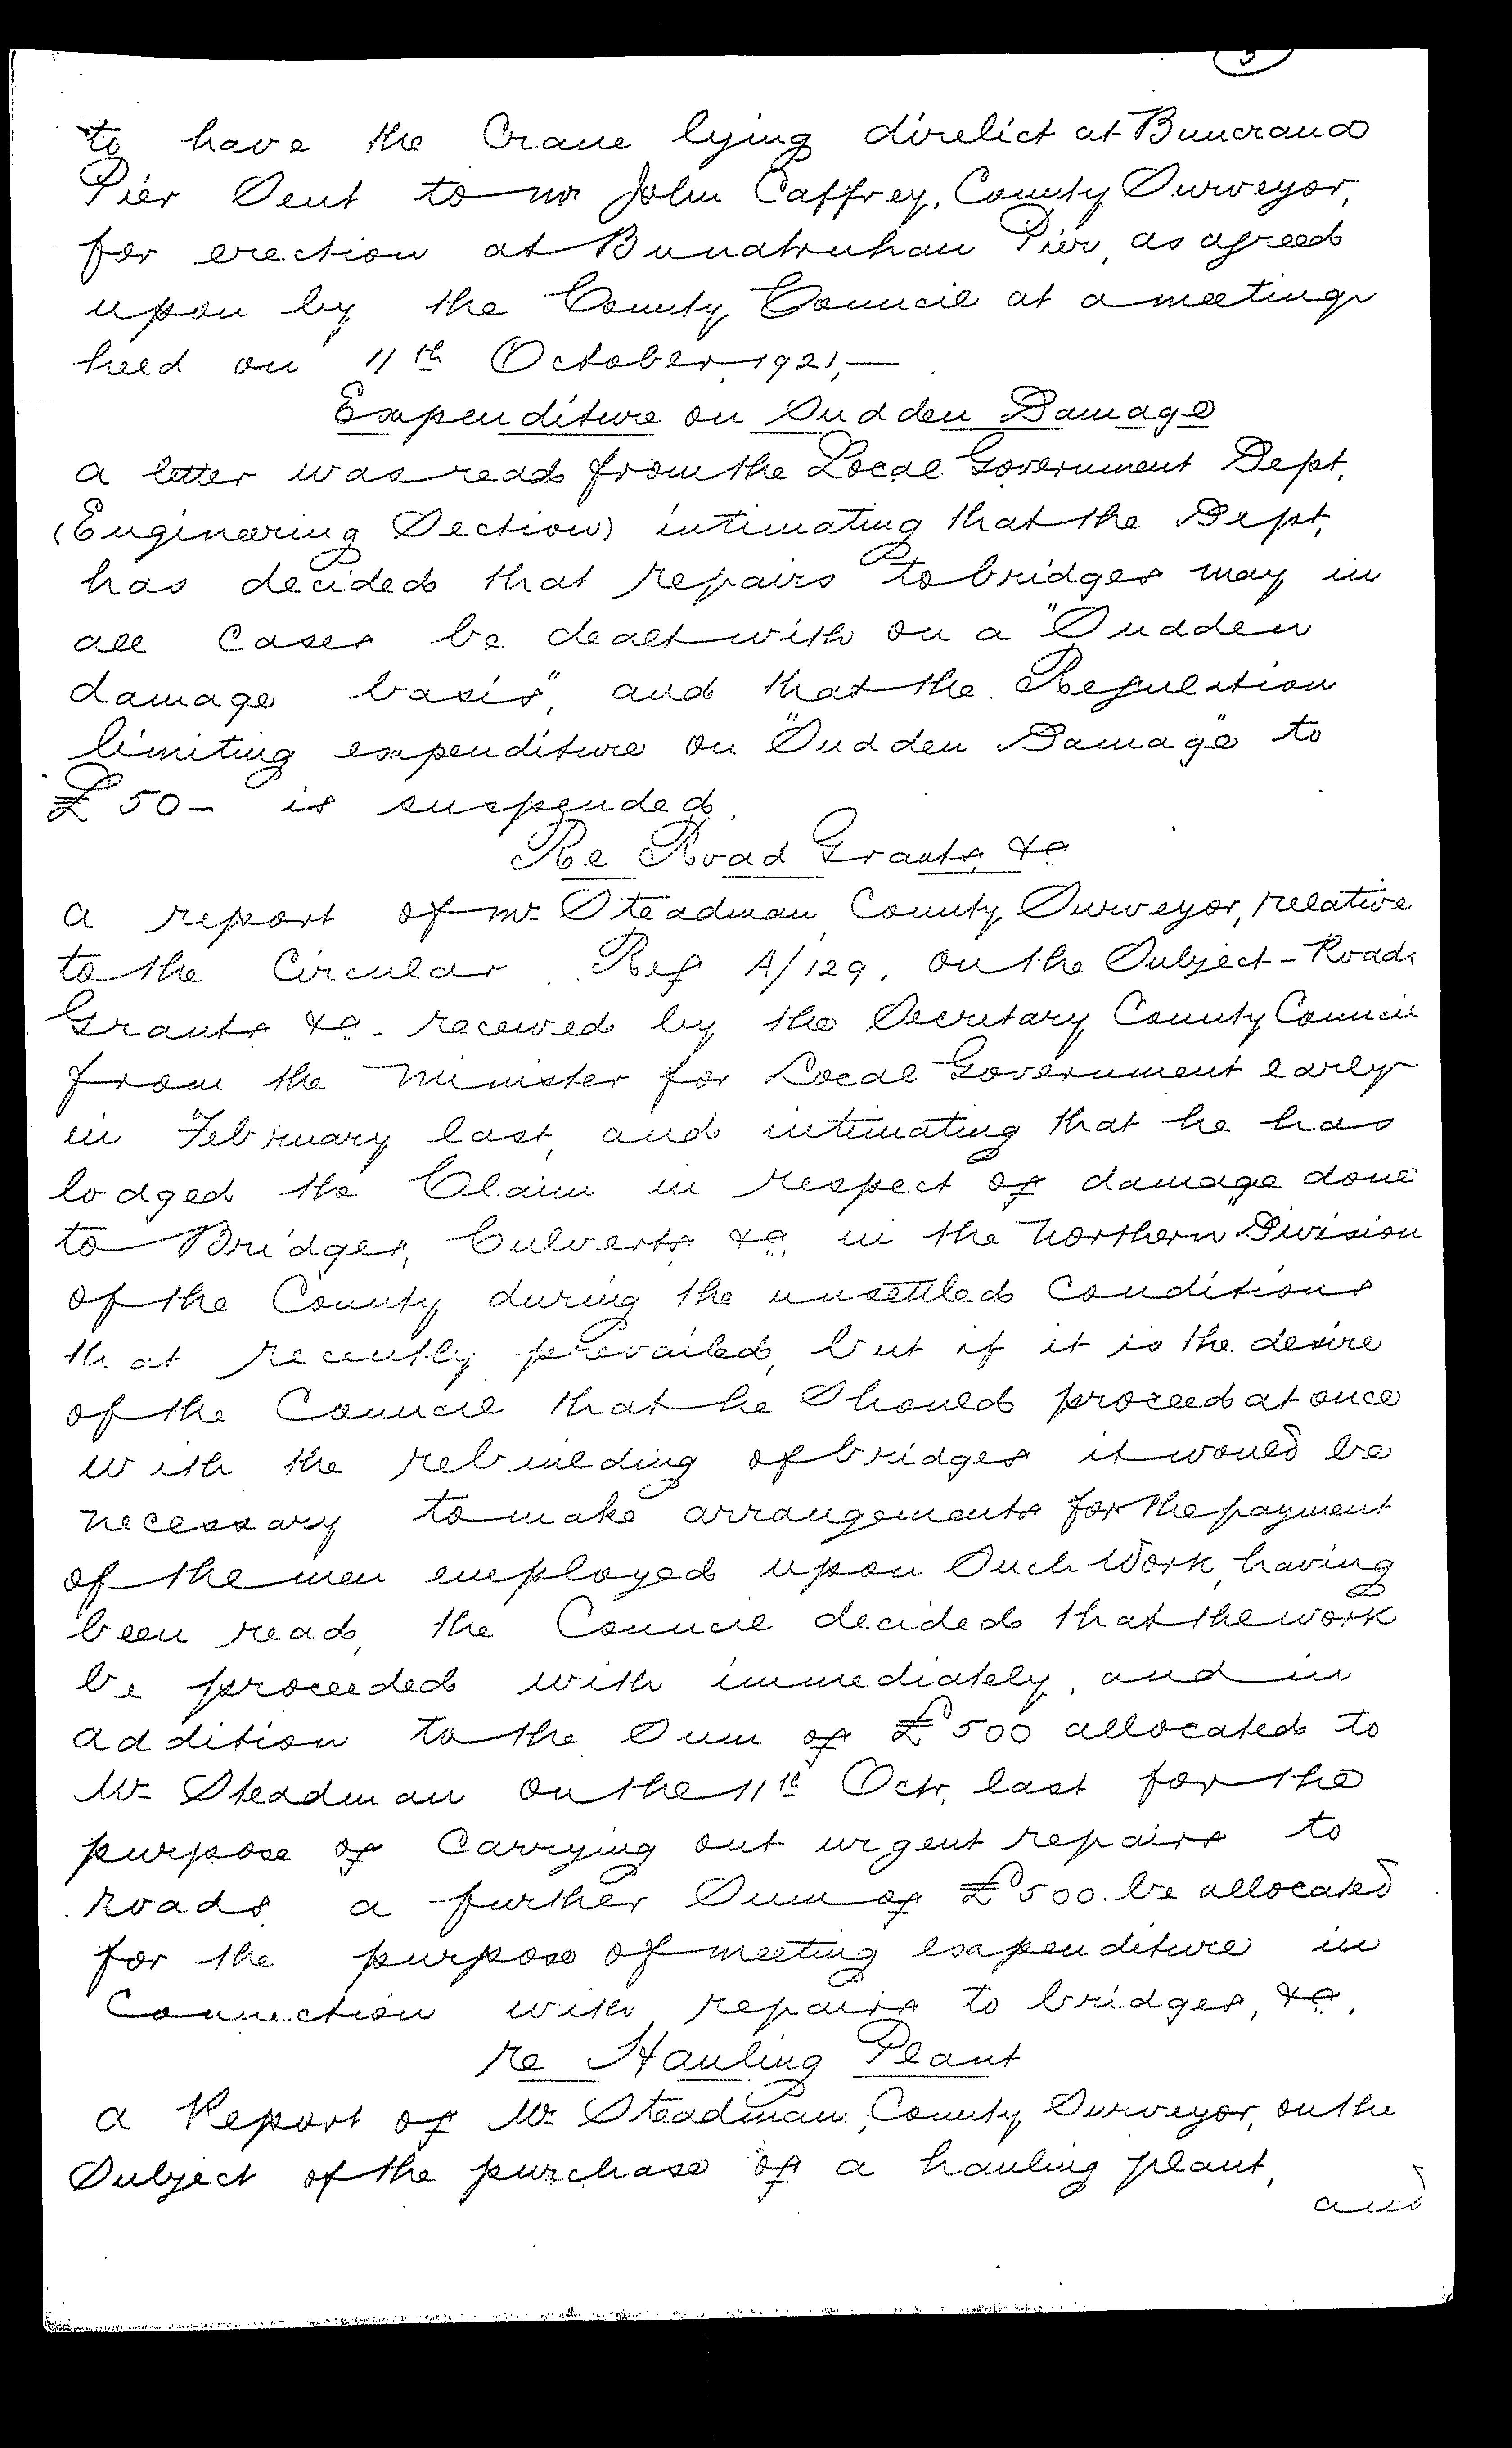 5
to have the Crane lying direlict at Buncrana
Pier Sent to Mr John Caffrey, County Surveyor,
for erection at Bunatruhan Pier, as agreed
upon by the County Council at a meeting
held on 11th October, 1921,—
Expenditure on Sudden Damage
a letter was read from the Local Government Dept.
(Engineering Section) intimating that the Dept.
has decided that repairs to bridges may in
all cases be dealt with on a "Sudden
damage basis", and that the Regulation
limiting expenditure on "Sudden Damage" to
£50- is suspended.
Re Road Grants, &c
a report of Mr. Steadman, County Surveyor, relative
to the Circular Ref A/129, on the Subject - Roads
Grants &c. received by the Secretary County Council
from the Minister for Local Government early
in February last, and intimating that he has
lodged the Claim in respect of damage done
to Bridges, Culverts &c, in the Northern Division
of the County during the unsettled Conditions
that recently prevailed, but if it is the desire
of the Council that he Should proceed at once
with the rebuilding of bridges it would be
necessary to make arrangements for the payment
of the men employed upon Such Work, having
been read, the Council decided that the work
be proceeded with immediately, and in
addition to the Sum of £500 allocated to
Mr Steadman on the 11th Octr, last for the
purpose of Carrying out urgent repairs to
roads a further Sum of £500. be allocated
for the purpose of meeting expenditure in
Connection with repairs to bridges, &c.
re Hauling Plant
a Report of Mr Steadman, County Surveyor, on the
Subject of the purchase of a hauling plant,
and